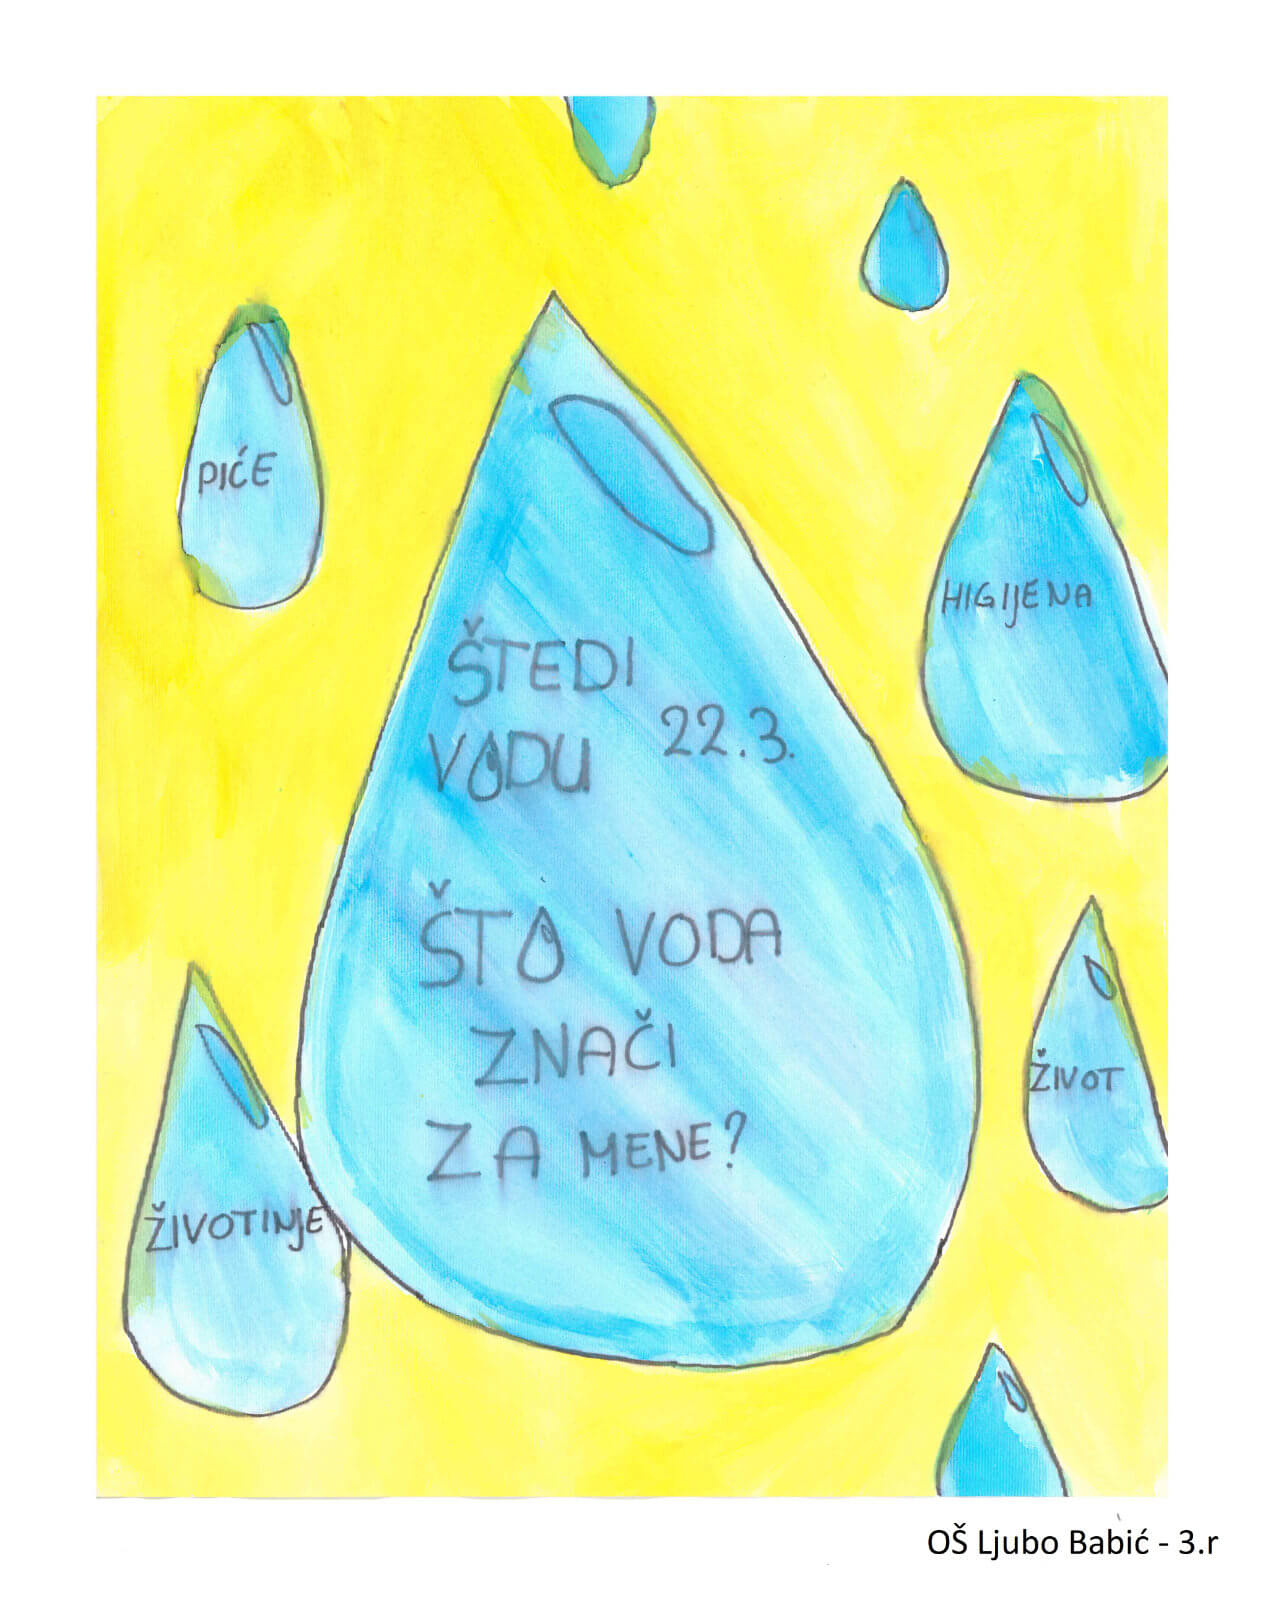 PIĆE
HIGIJENA
ŠTEDI
VODU 22.3.
ŠTO VODA
ZNAČI
ZA MENE?
ŽIVOT
ŽIVOTINJE
OŠ Ljubo Babić - 3.r